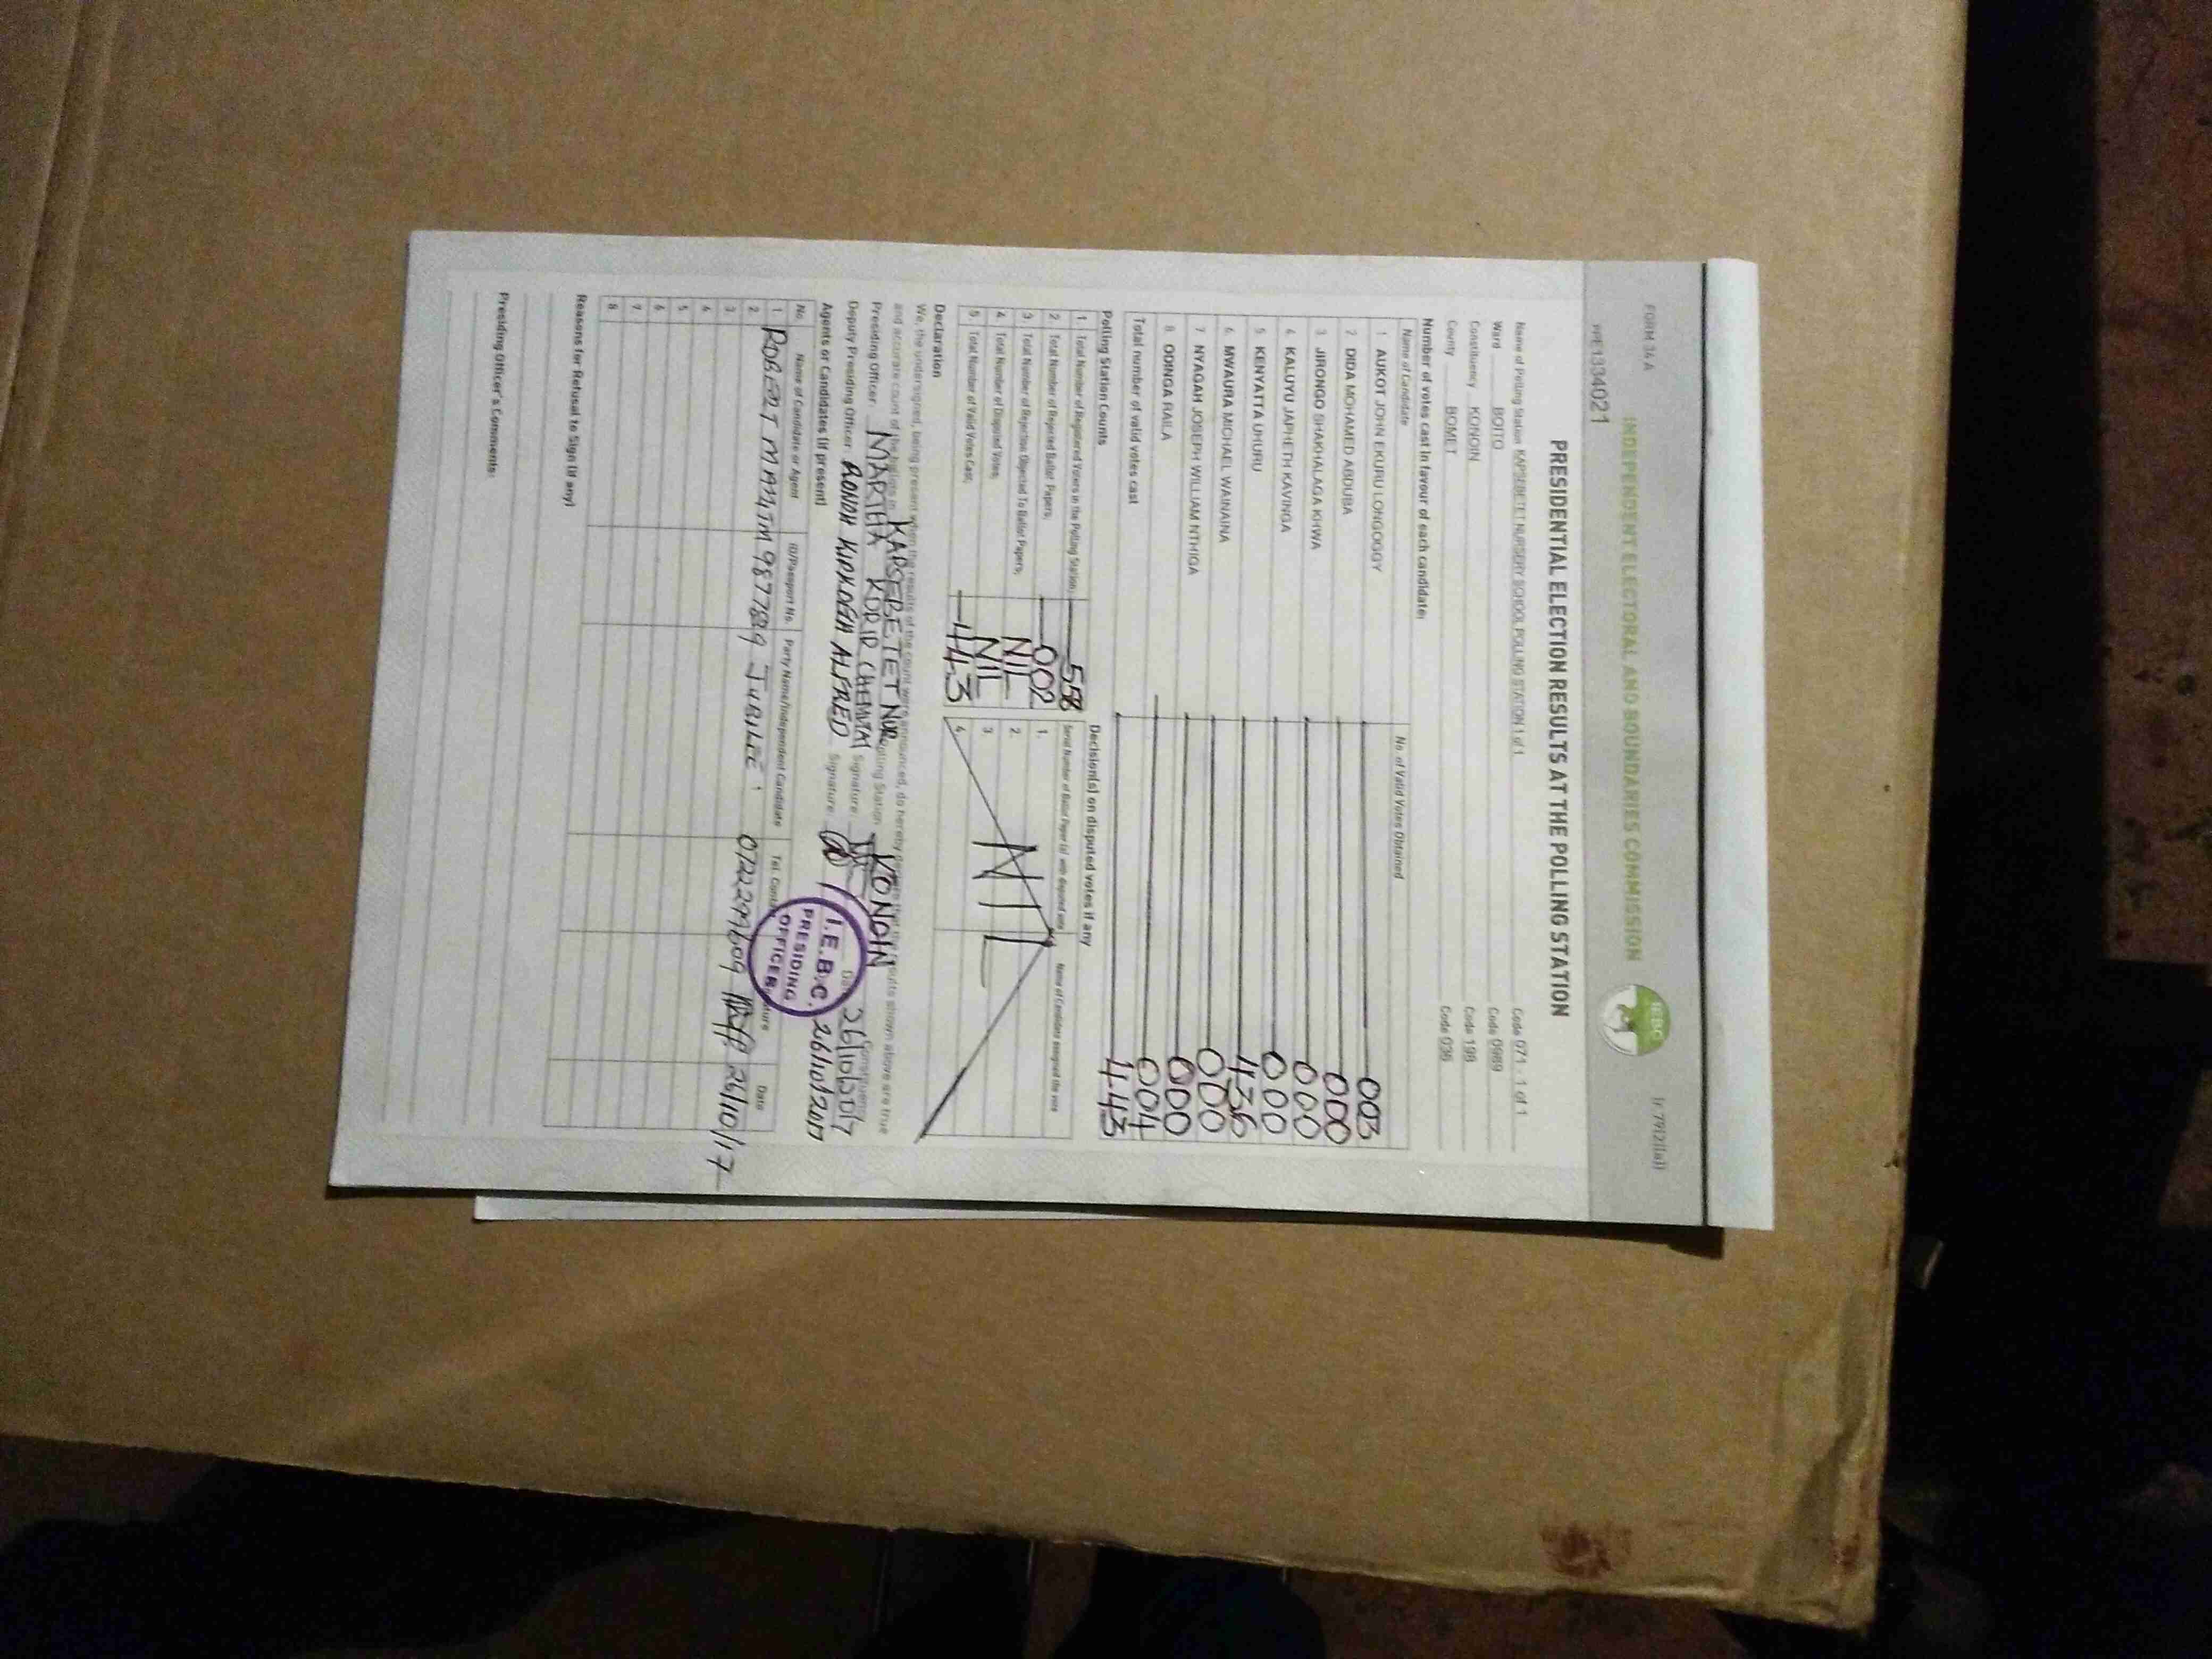 FORM 34 A
r. 79(2)(a)
INDEPENDENT ELECTORAL AND BOUNDARIES COMMISSION
IEBC
PPE1334021
PRESIDENTIAL ELECTION RESULTS AT THE POLLING STATION
Name of Polling Station KAPSEBETET NURSERY SCHOOL POLLING STATION 1 of 1 Code 071 - 1 of 1
Ward BOITO Code 0989
Constituency KONOIN Code 198
County BOMET Code 036
Number of votes cast in favour of each candidate:
Name of Candidate No. of Valid Votes Obtained
1 AUKOT JOHN EKURU LONGOGGY 003
2 DIDA MOHAMED ABDUBA 000
3 JIRONGO SHAKHALAGA KHWA 000
4 KALUYU JAPHETH KAVINGA 000
5 KENYATTA UHURU 436
6 MWAURA MICHAEL WAINAINA 000
7 NYAGAH JOSEPH WILLIAM NTHIGA 000
8 ODINGA RAILA 004
Total number of valid votes cast 443
Polling Station Counts
1. Total Number of Registered Voters in the Polling Station; 558
2. Total Number of Rejected Ballot Papers; 002
3. Total Number of Rejection Objected To Ballot Papers; NIL
4. Total Number of Disputed Votes; NIL
5. Total Number of Valid Votes Cast; 443
Decision(s) on disputed votes if any
Serial Number of Ballot Paper (s) with disputed votes Name of Candidate assigned the vote
1.
2.
3.
4.
NIL
Declaration
We, the undersigned, being present when the results of the count were announced, do hereby declare that the results shown above are true
and accurate count of the ballots in KAPSEBETET NUR Polling Station KONOIN Constituency
Presiding Officer MARTHA KORIR CHEMTAI Signature Date 26/10/2017
Deputy Presiding Officer RONOH KIPKOECH ALFRED Signature 26/10/2017
I.E.B.C.
PRESIDING
OFFICER
Agents or Candidates (if present)
No. Name of Candidate or Agent ID/Passport No. Party Name/Independent Candidate Tel. Contact Signature Date
1 ROBERT JUBILEE 26/10/17
2
3
4
5
6
7
8
Reasons for Refusal to Sign (if any)
Presiding Officer's Comments: